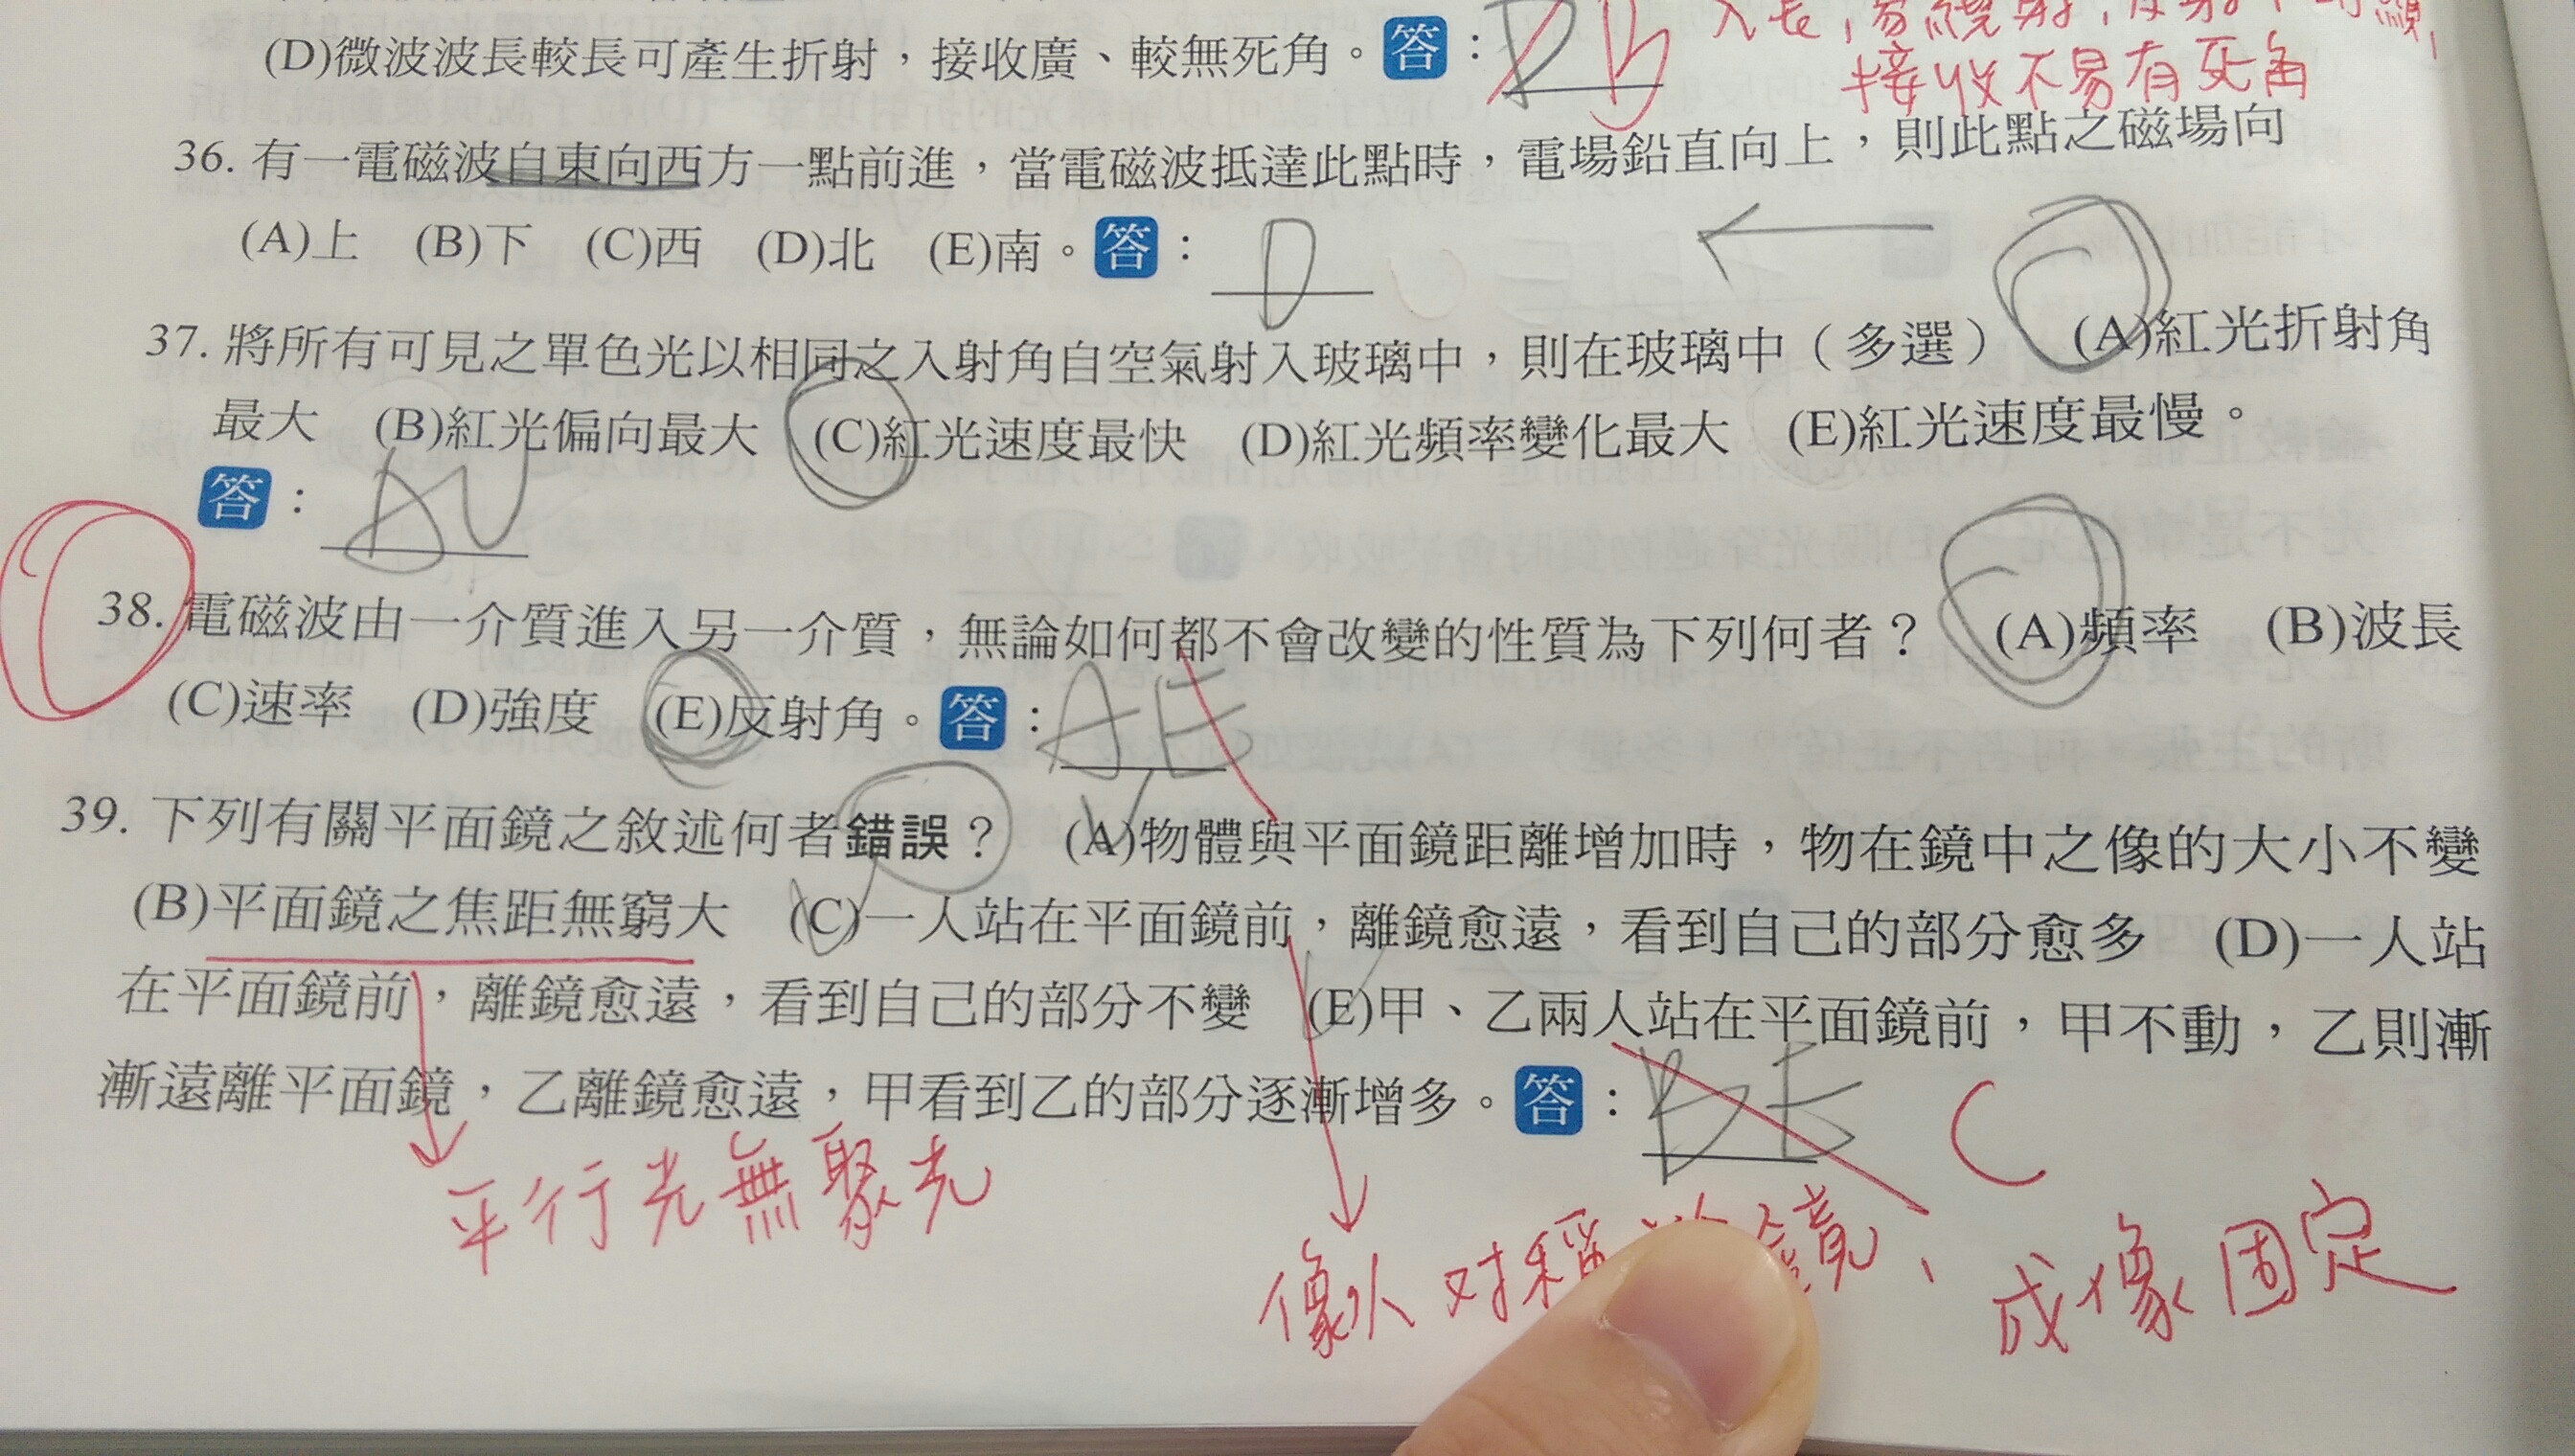 (D)微波波長較長可產生折射，接收廣、較無死角。答：D B 長，易繞射，反射不明顯，
接收不易有死角
36. 有一電磁波自東向西方一點前進，當電磁波抵達此點時，電場鉛直向上，則此點之磁場向
(A)上 (B)下 (C)西 (D)北 (E)南。答：D
37. 將所有可見之單色光以相同之入射角自空氣射入玻璃中，則在玻璃中（多選） (A)紅光折射角
最大 (B)紅光偏向最大 (C)紅光速度最快 (D)紅光頻率變化最大 (E)紅光速度最慢。
答：AC
38. 電磁波由一介質進入另一介質，無論如何都不會改變的性質為下列何者？ (A)頻率 (B)波長
(C)速率 (D)強度 (E)反射角。答：AE
39. 下列有關平面鏡之敘述何者錯誤？ (A)物體與平面鏡距離增加時，物在鏡中之像的大小不變
(B)平面鏡之焦距無窮大 (C)一人站在平面鏡前，離鏡愈遠，看到自己的部分愈多 (D)一人站
在平面鏡前，離鏡愈遠，看到自己的部分不變 (E)甲、乙兩人站在平面鏡前，甲不動，乙則漸
漸遠離平面鏡，乙離鏡愈遠，甲看到乙的部分逐漸增多。答：BE C
平行光無聚光
像 對稱 鏡、成像固定